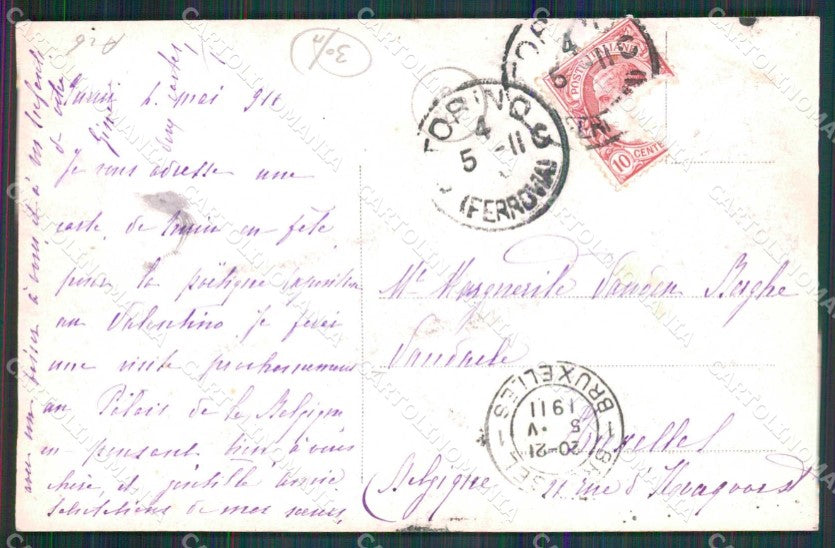 Turin 4 mai 911
Je vous adresse une
carte de Turin en fête
pour la poëtique
au Valentino je ferai
une visite prochainement
au Palais de la Belgique
en pensant bien à vous
chère et gentille amie
Salutations de mes sœurs
avec un baiser à vous et à vos enfants
TORINO
4
5 - 11
(FERROVIA)
TORINO
4
5 11
POSTE ITALIANE
10 CENT
Mme Marguerite Vanden Berghe
Vandaele
Bruxelles
Belgique 21 rue d'
1 BRUXELLES 1
1911
5 V
20-21
BRUSSEL
CARTOLINOMANIA